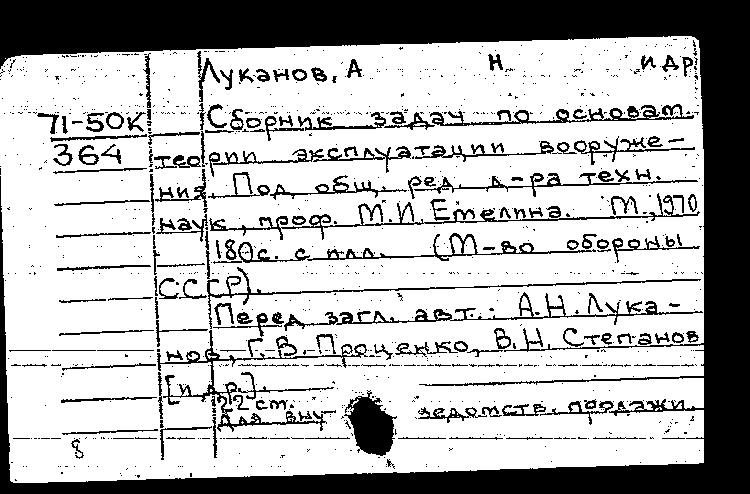 Луканов, А Н и др
71-50К Сборник задач по основам.
364 теории эксплуатации вооруже-
ния. Под общ. ред. д-ра техн.
наук, проф. М.И. Емелина. М., 1970
180с. с илл. (М-во обороны
СССР).
Перед загл. авт.: А.Н. Лука-
нов, Г.В. Проценко, В.Н. Степанов
[и др.].
22 см.
Для вну ведомств. продажи.
8